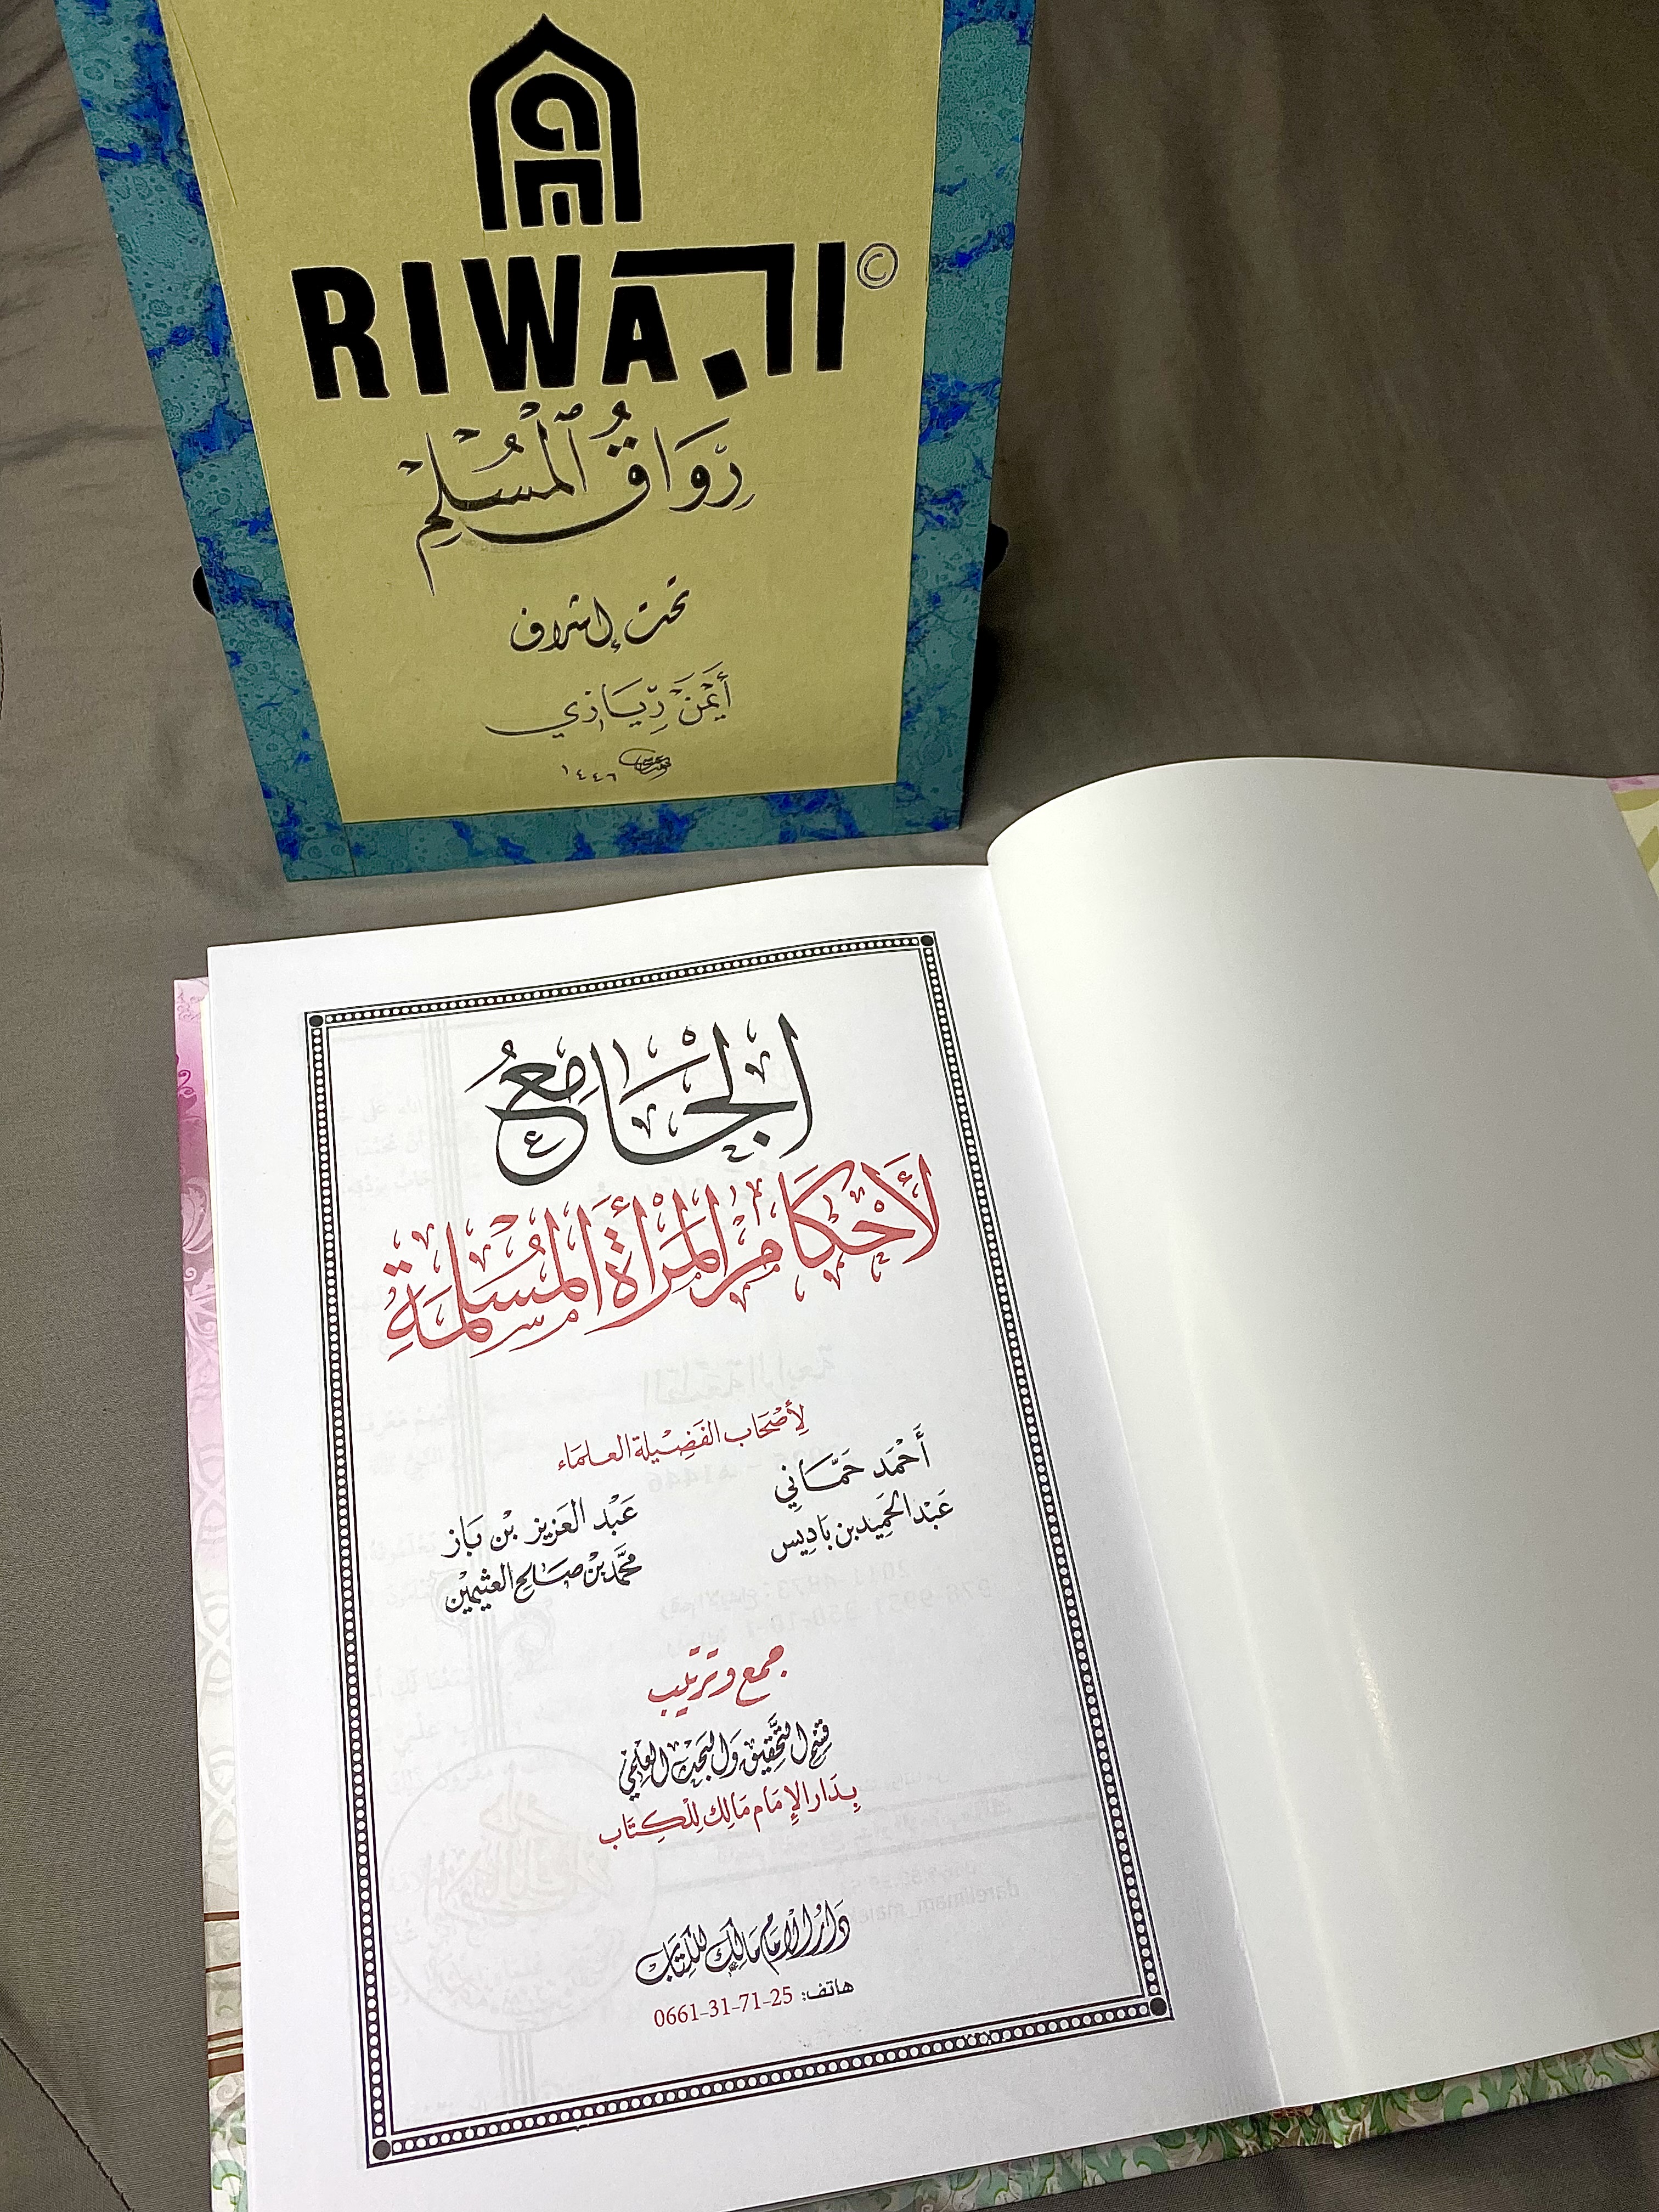 RIWAال©
رِوَاقُ ٱلْمُسْلِمْ
تحت إشراف
أَيْمَنْ رِّيَازي
١٤٤٦
الْجَامِعُ
لأَحْكَامِ المَرْأَةِ المُسْلِمَةِ
لِأَصْحَابِ الفَضِيْلَةِ العُلمَاء
أَحْمَد حَمَّاني عَبْد العَزِيز بْن بَاز
عَبْد الحَمِيد بن بَادِيس محمَّد بْن صَالِح العثيمِيْن
جمع وترتيب
قِسْمِ التَّحْقِيق وَالبَحْث العِلْمِيِّ
بِدَار الإِمَام مَالِك لِلْكِتَاب
دَارُ الْإِمَام مَالِك لِلْكِتَاب
هاتف: 0661-31-71-25